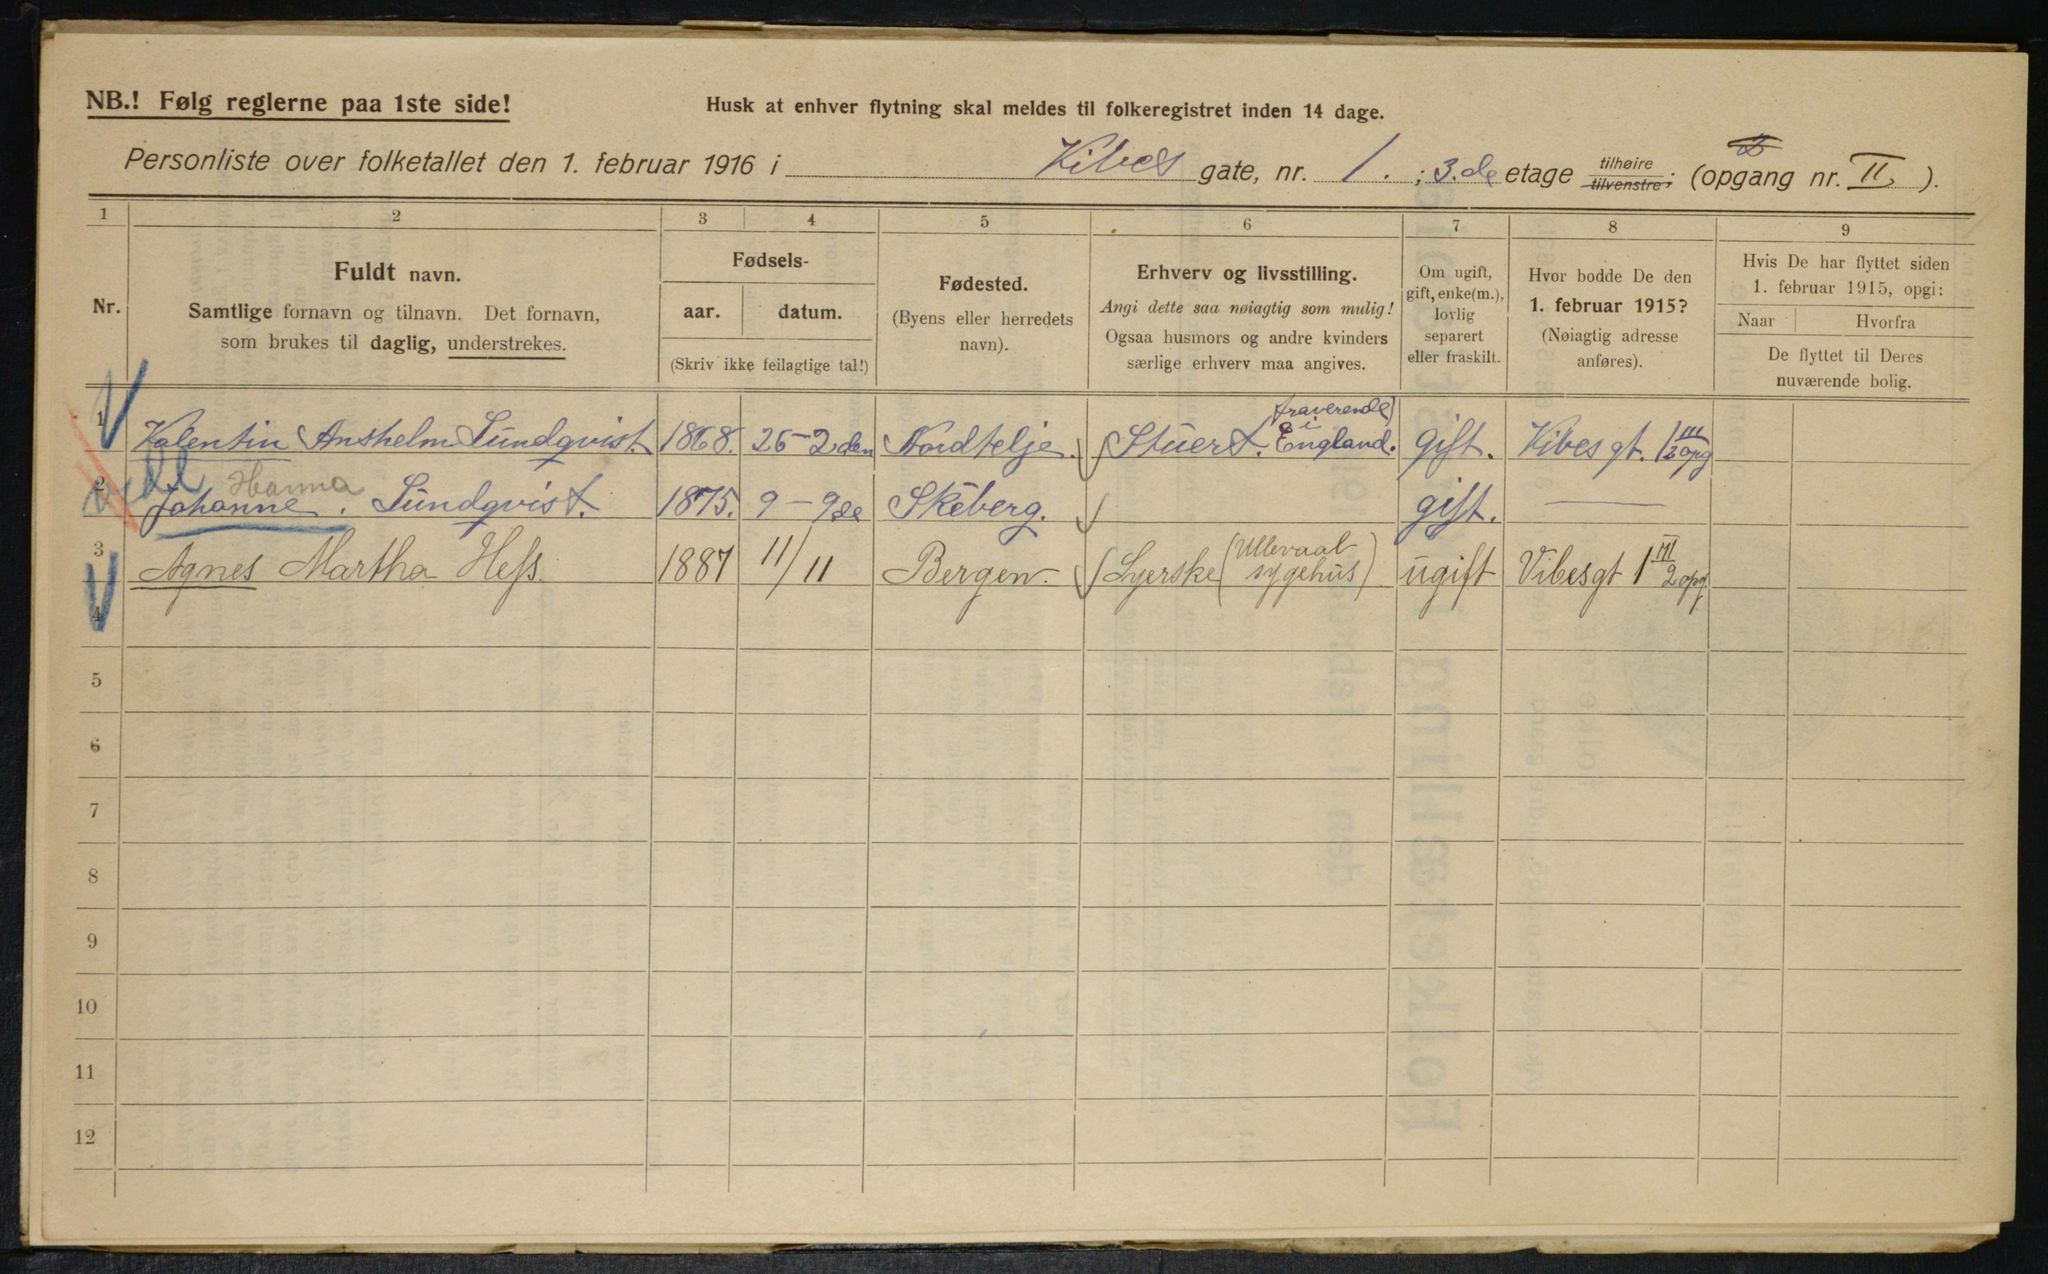 NB.! Følg reglerne paa 1ste side!
Husk at enhver flytning skal meldes til folkeregistret inden 14 dage.
Personliste over folketallet den 1. februar 1916 i Vibes gate, nr. 1. ; 3.de etage tilhøire tilvenstre; (opgang nr. II. ).
1 2 3 4 5 6 7 8 9
Nr.
Fuldt navn.
Samtlige fornavn og tilnavn. Det fornavn,
som brukes til daglig, understrekes.
Fødsels-
aar. datum.
(Skriv ikke feilagtige tal!)
Fødested.
(Byens eller herredets
navn).
Erhverv og livsstilling.
Angi dette saa nøiagtig som mulig!
Ogsaa husmors og andre kvinders
særlige erhverv maa angives.
Om ugift,
gift, enke(m.),
lovlig
separert
eller fraskilt.
Hvor bodde De den
1. februar 1915?
(Nøiagtig adresse
anføres).
Hvis De har flyttet siden
1. februar 1915, opgi:
Naar Hvorfra
De flyttet til Deres
nuværende bolig.
1 Valentin Anshelm Sundqvist. 1868. 26-2den Nordtelje. Stuert. fraverende i England. gift. Vibes gt. 1 III 2 opg
2 Johanne Hanna. Sundqvist. 1875. 9-9de Skeberg. gift. —
3 Agnes Martha Hess 1887 11/11 Bergen. Syerske (Ullevaal sygehus) ugift Vibesgt 1 III 2 opg.
4
5
6
7
8
9
10
11
12